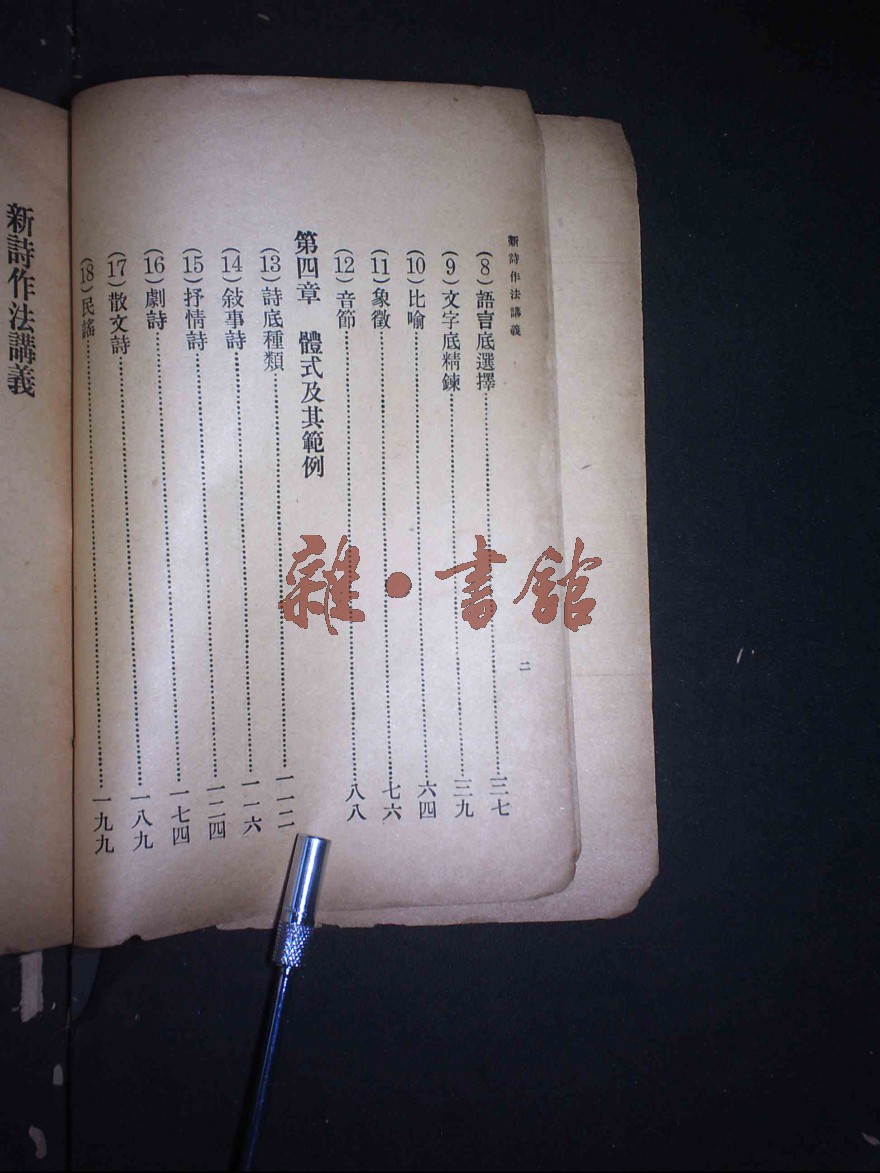 新詩作法講義
(8)語言底選擇……三七
(9)文字底精鍊……三九
(10)比喻……六四
(11)象徵……七六
(12)音節……八八
第四章　體式及其範例
(13)詩底種類……一一二
(14)敍事詩……一一六
(15)抒情詩……一二四
(16)劇詩……一七四
(17)散文詩……一八九
(18)民謠……一九九
二
新詩作法講義
雜·書館